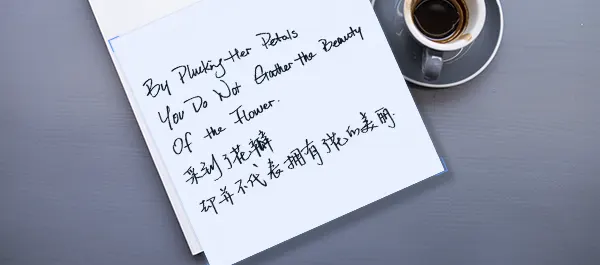 By Plucking Her Petals
You Do Not Gather the Beauty
Of the Flower.
采到了花瓣
却并不代表拥有了花的美丽.